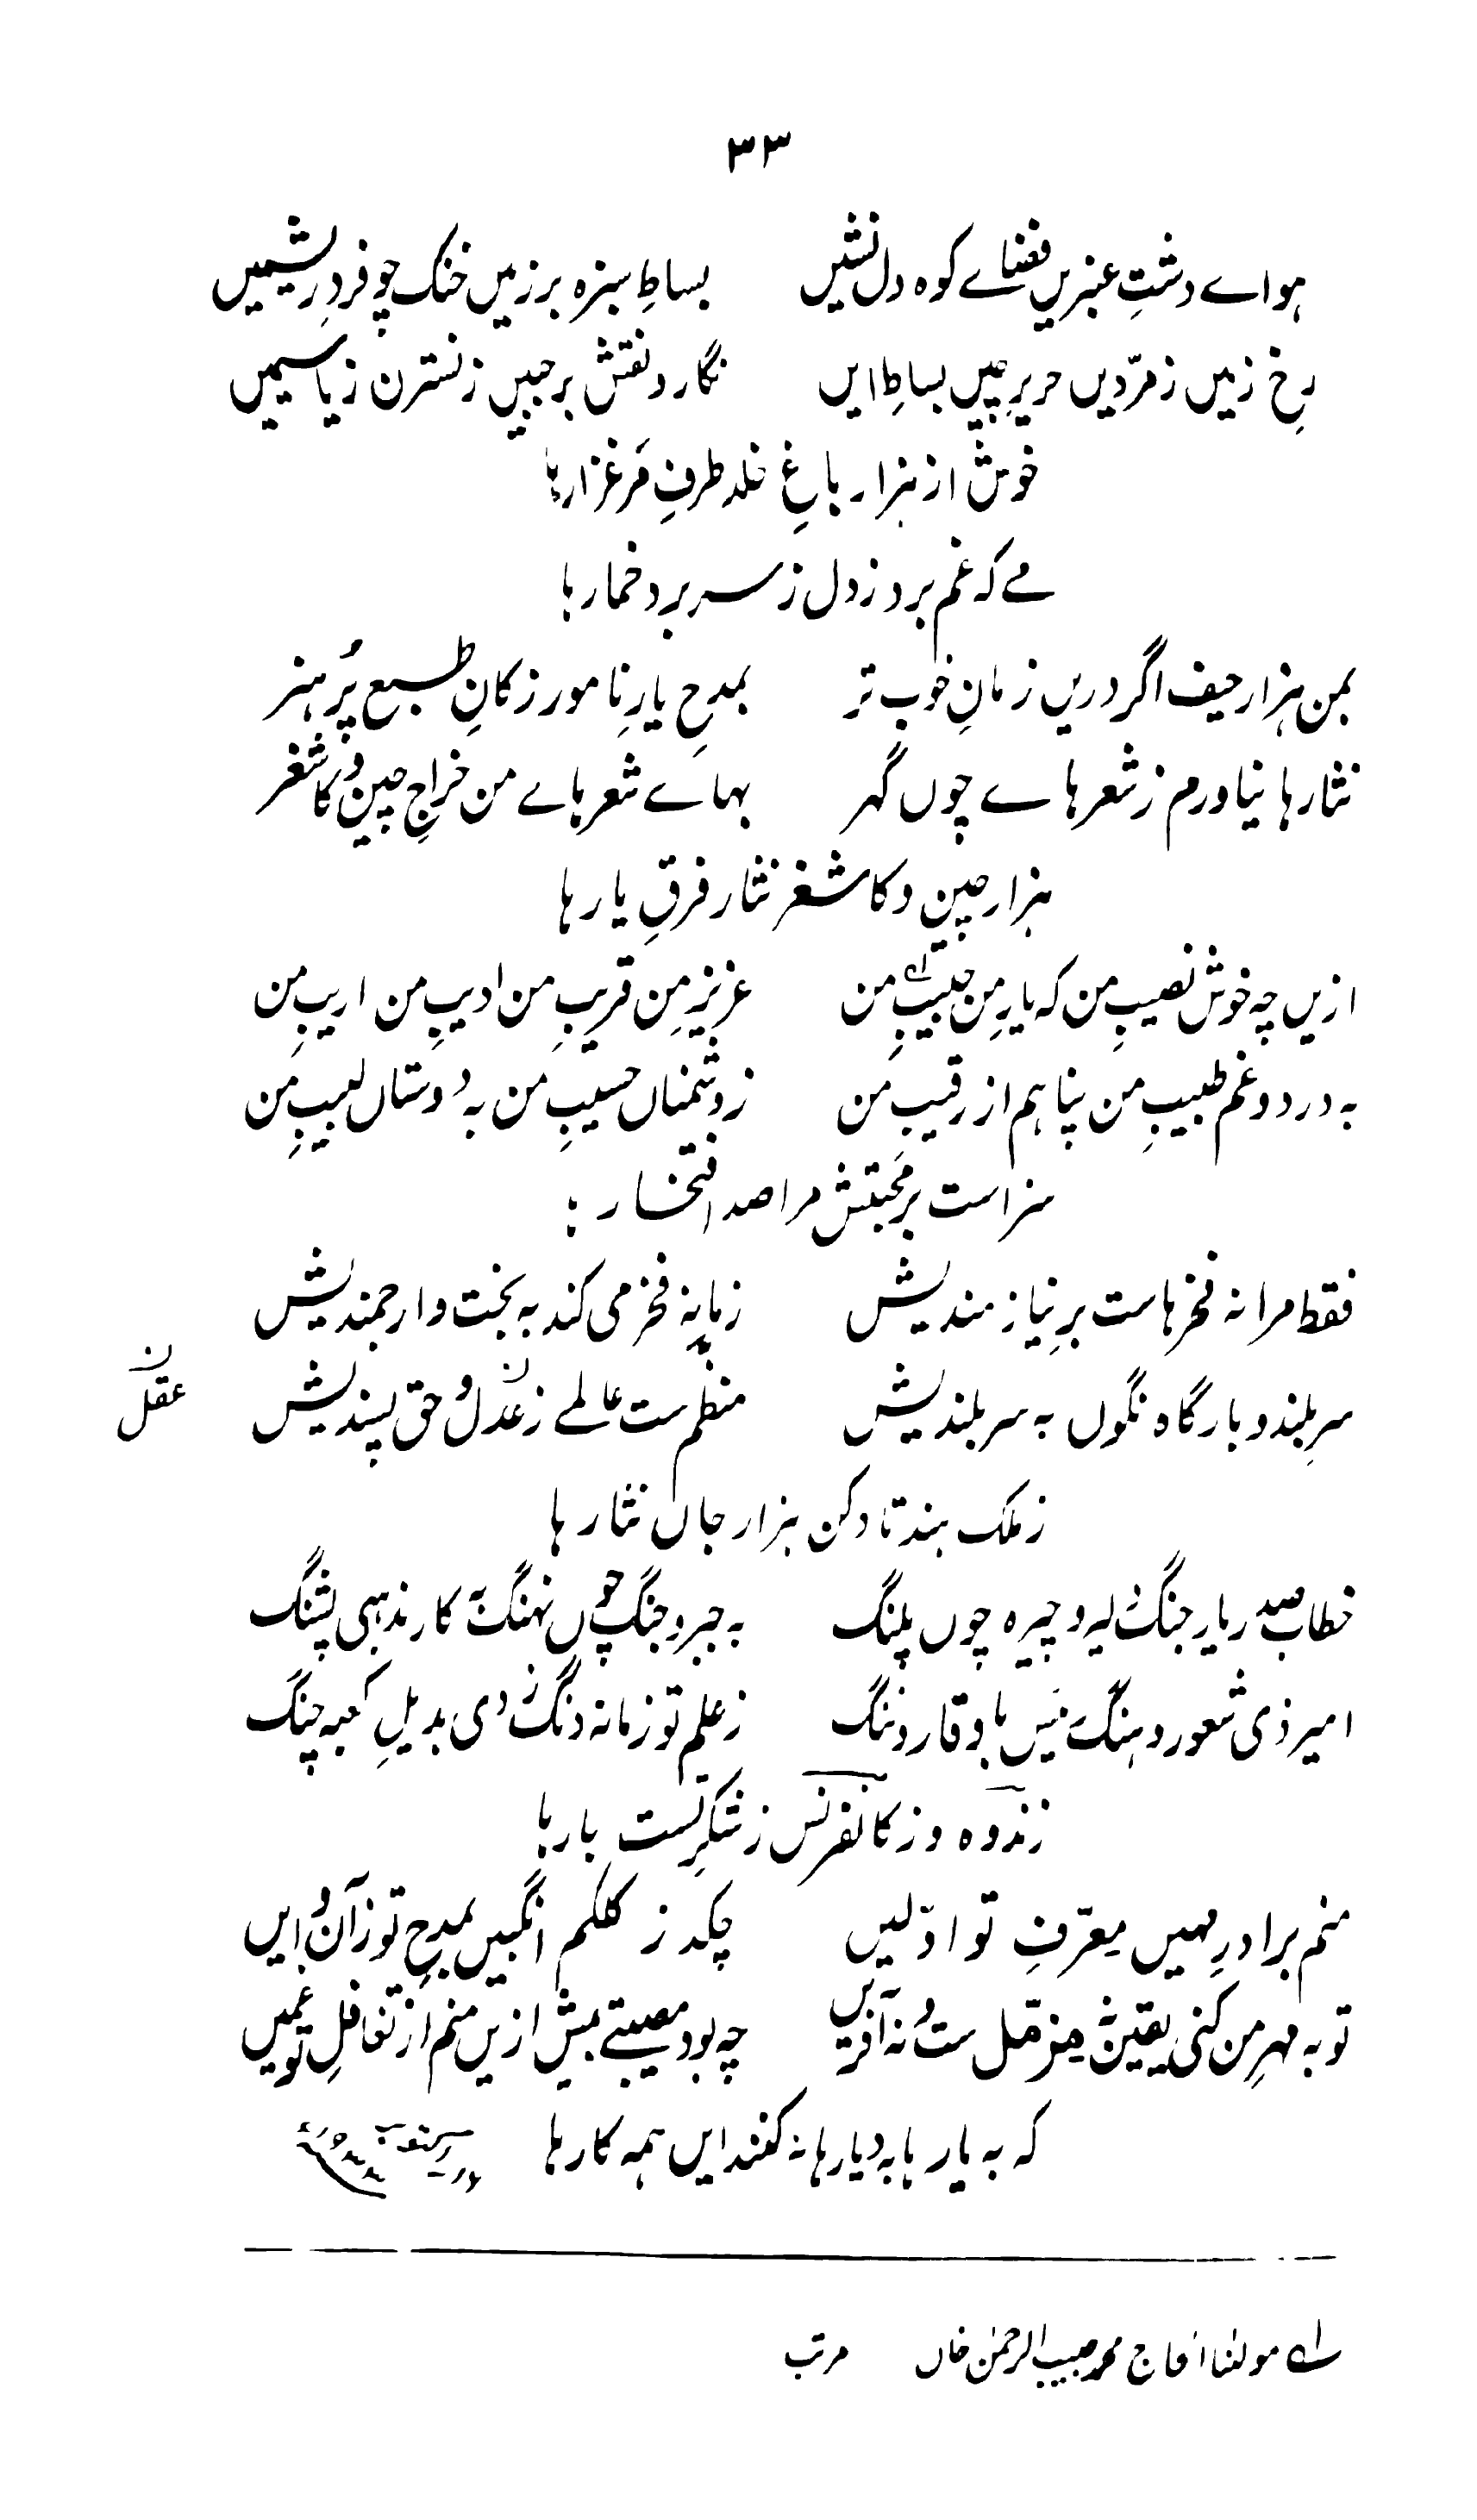 ۳۳
ہواے دشتِ عنبریں فضائے کوہ دل نشیں بساطِ سبزہ بر زمیں خنک چو فردِ ریشمیں
رخِ زمیں زمرّدیں حریرِ چیں بساطِ ایں نگار و نقش بر جبیں ز نسترن ز یاسمیں
خوش از ہزار باغِ خلد طرفِ مَرغزارہا
مے کہ غم برد ز دل ز سر برد خمارہا
بمن ہزار حیف اگر دریں زمانِ خوب تر بمدحِ یارِ نامور ز کانِ طبع پُر ہنر
نثارہا نیاورم ز شعرہاے چوں گہر بہاے شعرہاے من خراجِ چین و کاشغر
ہزار چین و کاشغر نثار فرقِ یارہا
ازیں چہ خوش نصیبِ من کہ یارِ من حبیبِ من عزیزِ من قریبِ من ادیبِ من اریبِ من
بہ درد و غم طبیبِ من پناہم از رقیبِ من ز دشمناں حسیبِ من بہ دوستاں لبیبِ من
سزاست بر محبتش مرا صد افتخارہا
فقط مرا نہ فخرہاست بر نیاز مندیش زمانہ فخر می کند بہ بخت و ارجمندیش
سرِ بلند و بارگاہ نگوں بہ سر بلندیش منظم ست عالمے ز عدل و حق پسندیش
عقل
ز ملک ہند تا دکن ہزار جاں نثارہا
خطاب صدر یار جنگ دلیر و چیرہ چوں پلنگ بہ جبر و جنگ چوں نہنگ بہ کار مذہبی پشنگ
امیر ذی شعور و ہنگ رئیس با وقار و ننگ ز علم تو زمانہ دنگ بدیلِ کعبہ چنگ
ز ندوہ و ز کانفرنس ز شرکت بارہا
منم برادرِ مہیں معرّفِ تو اوّلیں چکد ز کلکم انگبیں بمدحِ تو ز آن و ایں
تو بہ مہرِ من کنی یقیں نہ آفریں چہ بود مصیبتے بیش ازیں منم از تغافلِ تو غمیں
کہ بہ یارہا بہ دیارہا نہ کنند ایں ہمہ کارہا
سلہ مولٰنا الحاج محمد حبیب الرحمٰن خاں مرتب